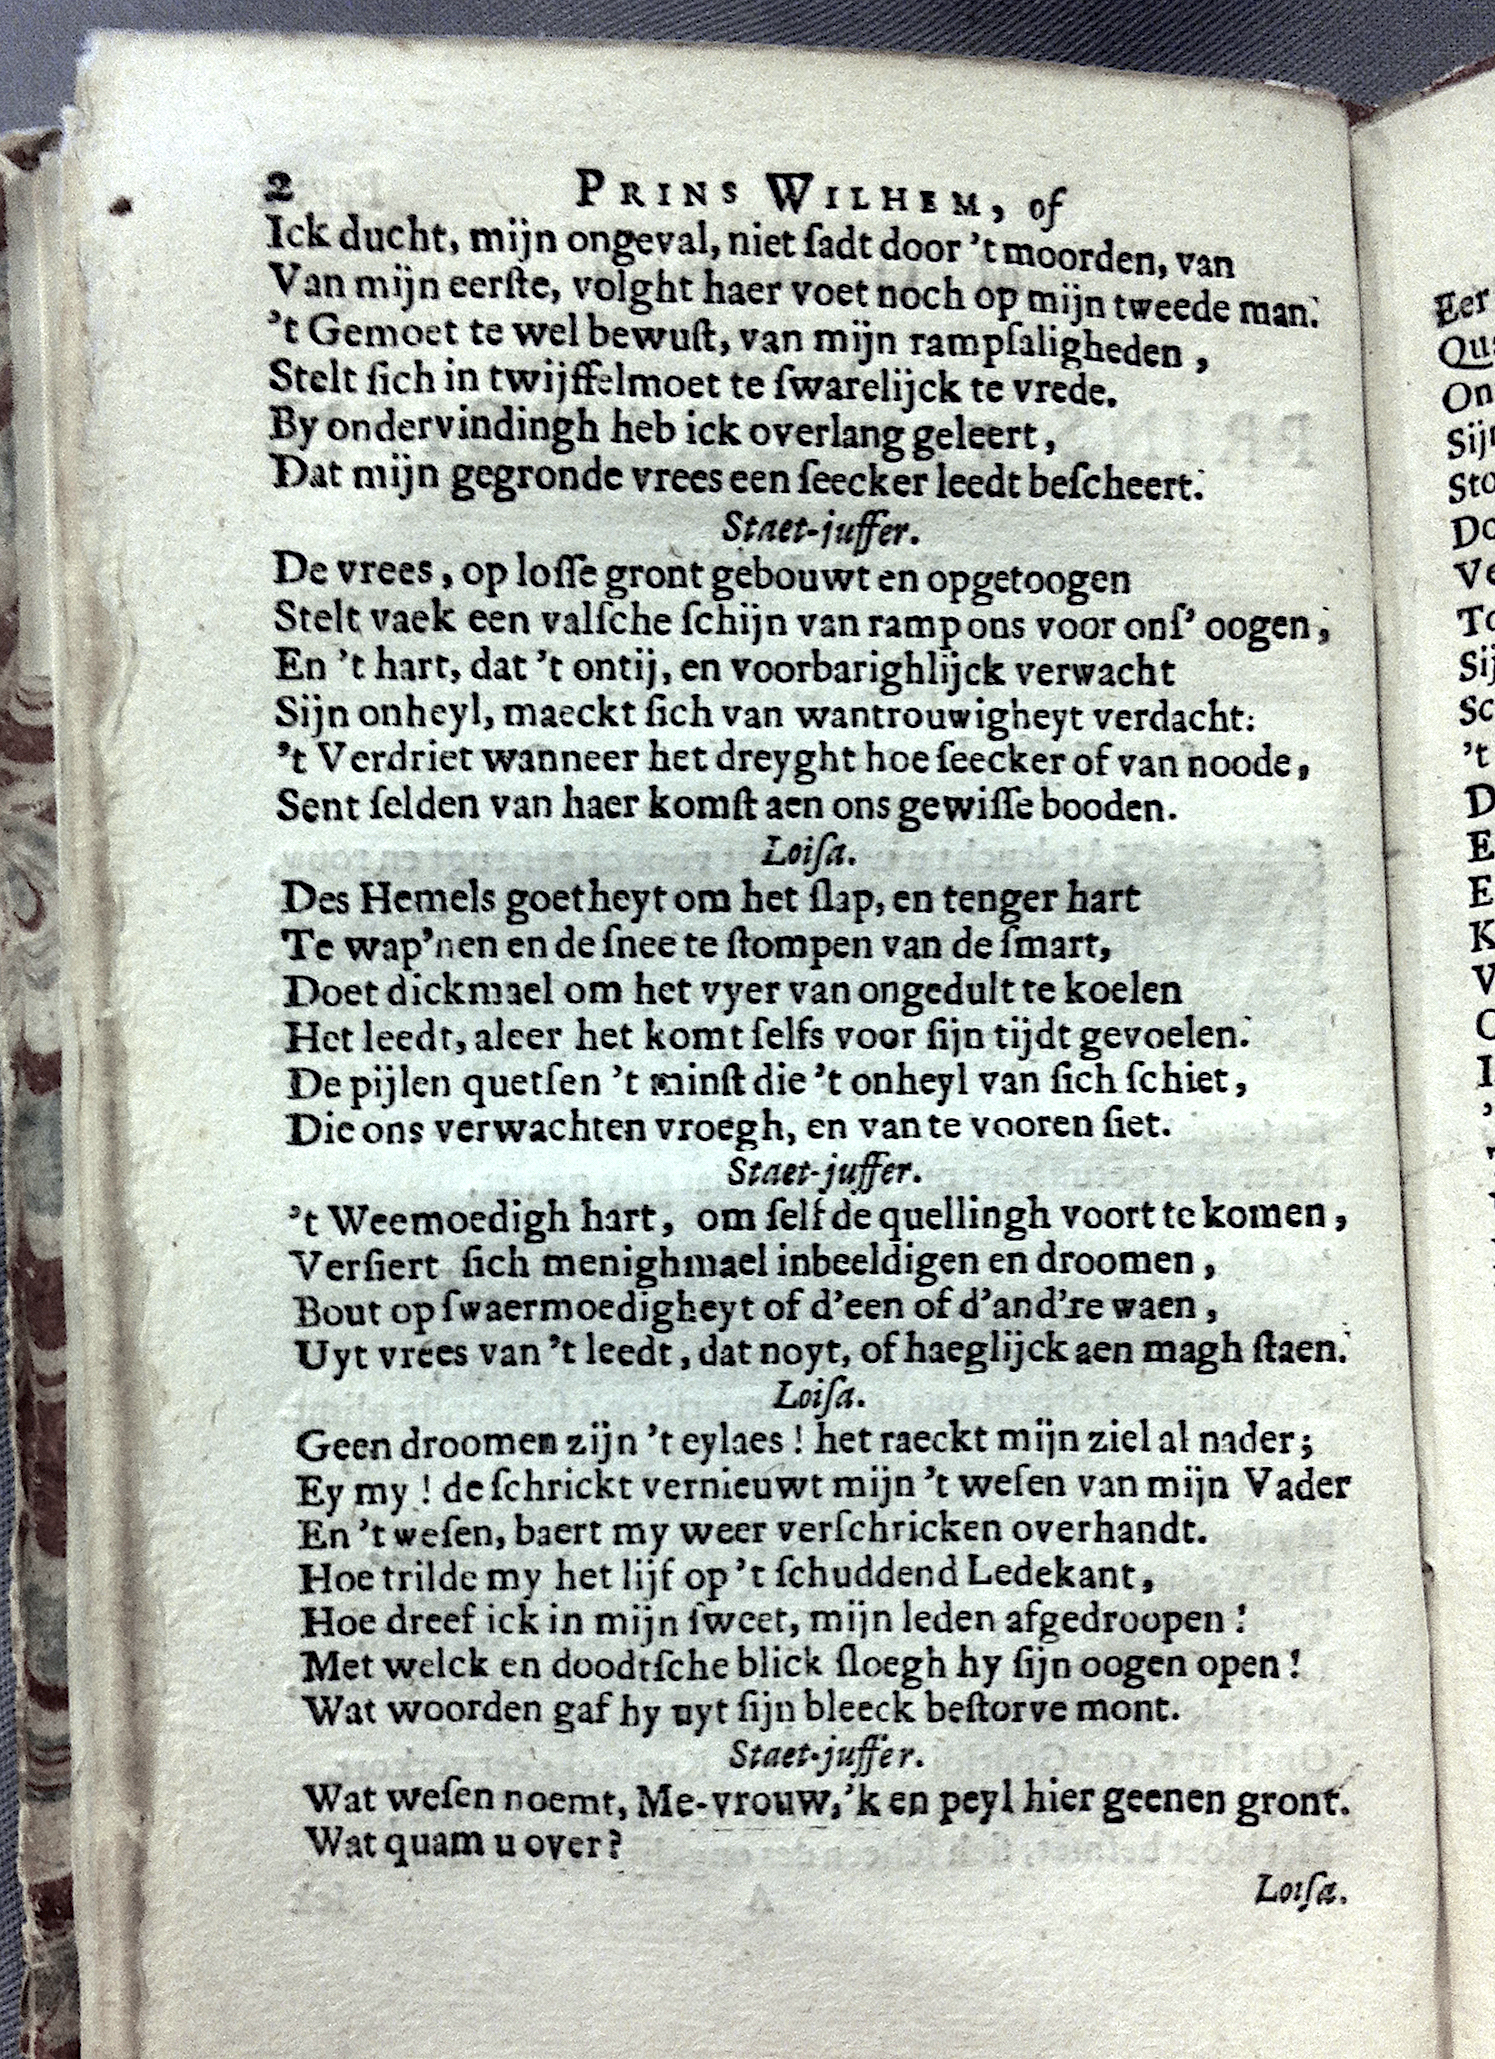 2 PRINS WILHEM, of
Ick ducht, mijn ongeval, niet ſadt door 't moorden, van
Van mijn eerſte, volght haer voet noch op mijn tweede man.
't Gemoet te wel bewuſt, van mijn rampſaligheden,
Stelt ſich in twijffelmoet te ſwarelijck te vrede.
By ondervindingh heb ick overlang geleert,
Dat mijn gegronde vrees een ſeecker leedt beſcheert.
Staet-juffer.
De vrees, op loſſe gront gebouwt en opgetoogen
Stelt vaek een valſche ſchijn van ramp ons voor onſ' oogen,
En 't hart, dat 't ontij, en voorbarighlijck verwacht
Sijn onheyl, maeckt ſich van wantrouwigheyt verdacht:
't Verdriet wanneer het dreyght hoe ſeecker of van noode,
Sent ſelden van haer komſt aen ons gewiſſe booden.
Loiſa.
Des Hemels goetheyt om het ſlap, en tenger hart
Te wap'nen en de ſnee te ſtompen van de ſmart,
Doet dickmael om het vyer van ongedult te koelen
Het leedt, aleer het komt ſelfs voor ſijn tijdt gevoelen.
De pijlen quetſen 't minſt die 't onheyl van ſich ſchiet,
Die ons verwachten vroegh, en van te vooren ſiet.
Staet-juffer.
't Weemoedigh hart, om ſelf de quellingh voort te komen,
Verſiert ſich menighmael inbeeldigen en droomen,
Bout op ſwaermoedigheyt of d'een of d'and're waen,
Uyt vrees van 't leedt, dat noyt, of haeglijck aen magh ſtaen.
Loiſa.
Geen droomen zijn 't eylaes! het raeckt mijn ziel al nader;
Ey my! de ſchrickt vernieuwt mijn 't weſen van mijn Vader
En 't weſen, baert my weer verſchricken overhandt.
Hoe trilde my het lijf op 't ſchuddend Ledekant,
Hoe dreef ick in mijn ſweet, mijn leden afgedroopen!
Met welck en doodtſche blick ſloegh hy ſijn oogen open!
Wat woorden gaf hy uyt ſijn bleeck beſtorve mont.
Staet-juffer.
Wat weſen noemt, Me-vrouw, 'k en peyl hier geenen gront.
Wat quam u over?
Loiſa.
Eer
On
Sij
Sto
Do
Ve
To
Sij
Sc
't
D
E
E
K
V